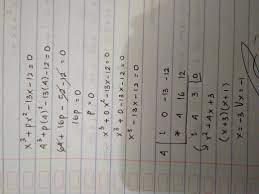 x³ + px² - 13x - 12 = 0
4³ + p(4)² - 13(4) - 12 = 0
64 + 16p - 52 - 12 = 0
16p = 0
p = 0
x³ + 0x² - 13x - 12 = 0
x³ + 0 - 13x - 12 = 0
x³ - 13x - 12 = 0
4 | 1 0 -13 -12
4 16 12
1 4 3 | 0
x² + 4x + 3
(x+3)(x+1)
x = -3 V x = -1